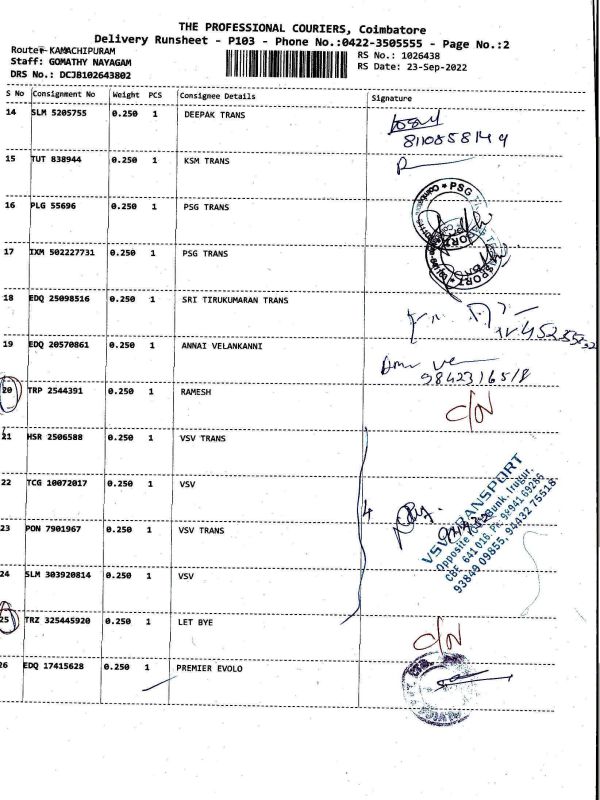 THE PROFESSIONAL COURIERS, Coimbatore
Delivery Runsheet - P103 - Phone No.:0422-3505555 - Page No.:2
Route:- KAMACHIPURAM
RS No.: 1026438
Staff: GOMATHY NAYAGAM
RS Date: 23-Sep-2022
DRS No.: DCJB102643802
S No Consignment No Weight PCS Consignee Details Signature
14 SLM 5205755 0.250 1 DEEPAK TRANS
8110858149
15 TUT 838944 0.250 1 KSM TRANS
16 PLG 55696 0.250 1 PSG TRANS
PSG
17 IXM 502227731 0.250 1 PSG TRANS
18 EDQ 25098516 0.250 1 SRI TIRUKUMARAN TRANS
19 EDQ 20570861 0.250 1 ANNAI VELANKANNI
9842316518
20 TRP 2544391 0.250 1 RAMESH
C/N
21 HSR 2506588 0.250 1 VSV TRANS
22 TCG 10072017 0.250 1 VSV
4
VSV TRANSPORT
Opposite Bunk, Irugur,
CBE 641 016. P: 96941 69286
93849 09855, 94432 75518
23 PON 7901967 0.250 1 VSV TRANS
24 SLM 303920814 0.250 1 VSV
25 TRZ 325445920 0.250 1 LET BYE
C/N
26 EDQ 17415628 0.250 1 PREMIER EVOLO